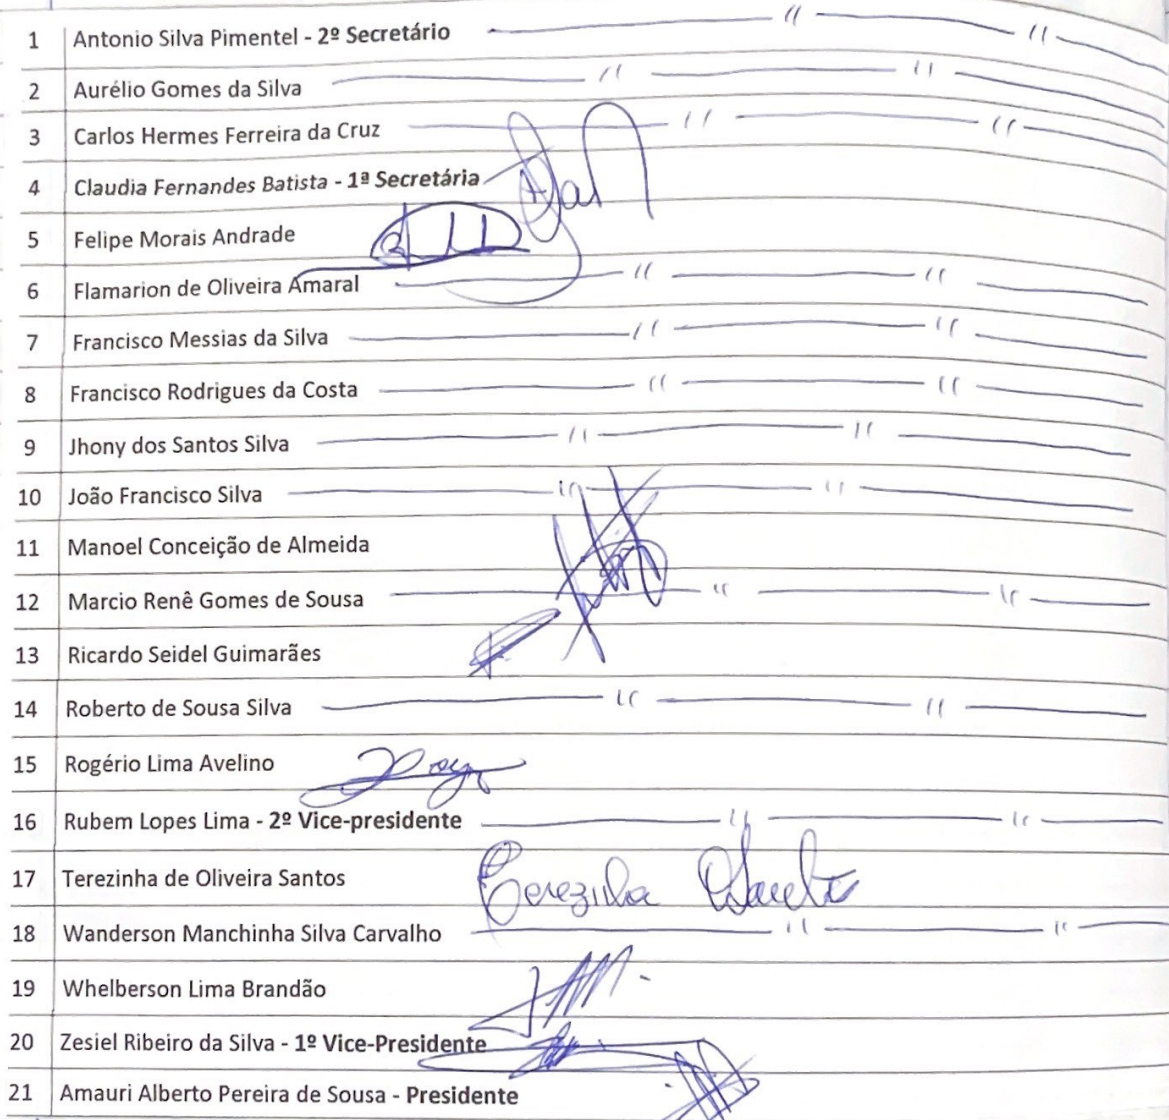 1 Antonio Silva Pimentel - 2º Secretário
2 Aurélio Gomes da Silva
3 Carlos Hermes Ferreira da Cruz
4 Claudia Fernandes Batista - 1ª Secretária
5 Felipe Morais Andrade
6 Flamarion de Oliveira Amaral
7 Francisco Messias da Silva
8 Francisco Rodrigues da Costa
9 Jhony dos Santos Silva
10 João Francisco Silva
11 Manoel Conceição de Almeida
12 Marcio Renê Gomes de Sousa
13 Ricardo Seidel Guimarães
14 Roberto de Sousa Silva
15 Rogério Lima Avelino
16 Rubem Lopes Lima - 2º Vice-presidente
17 Terezinha de Oliveira Santos Terezinha
18 Wanderson Manchinha Silva Carvalho
19 Whelberson Lima Brandão
20 Zesiel Ribeiro da Silva - 1º Vice-Presidente
21 Amauri Alberto Pereira de Sousa - Presidente